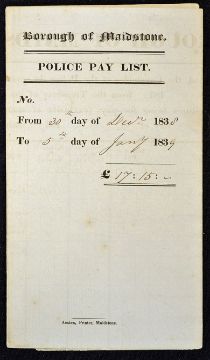 Borough of Maidstone.
POLICE PAY LIST.
No.
From 30th day of Decr 1838
To 5th day of Jany 1839
£ 17:15:-
Printer, Maidstone.